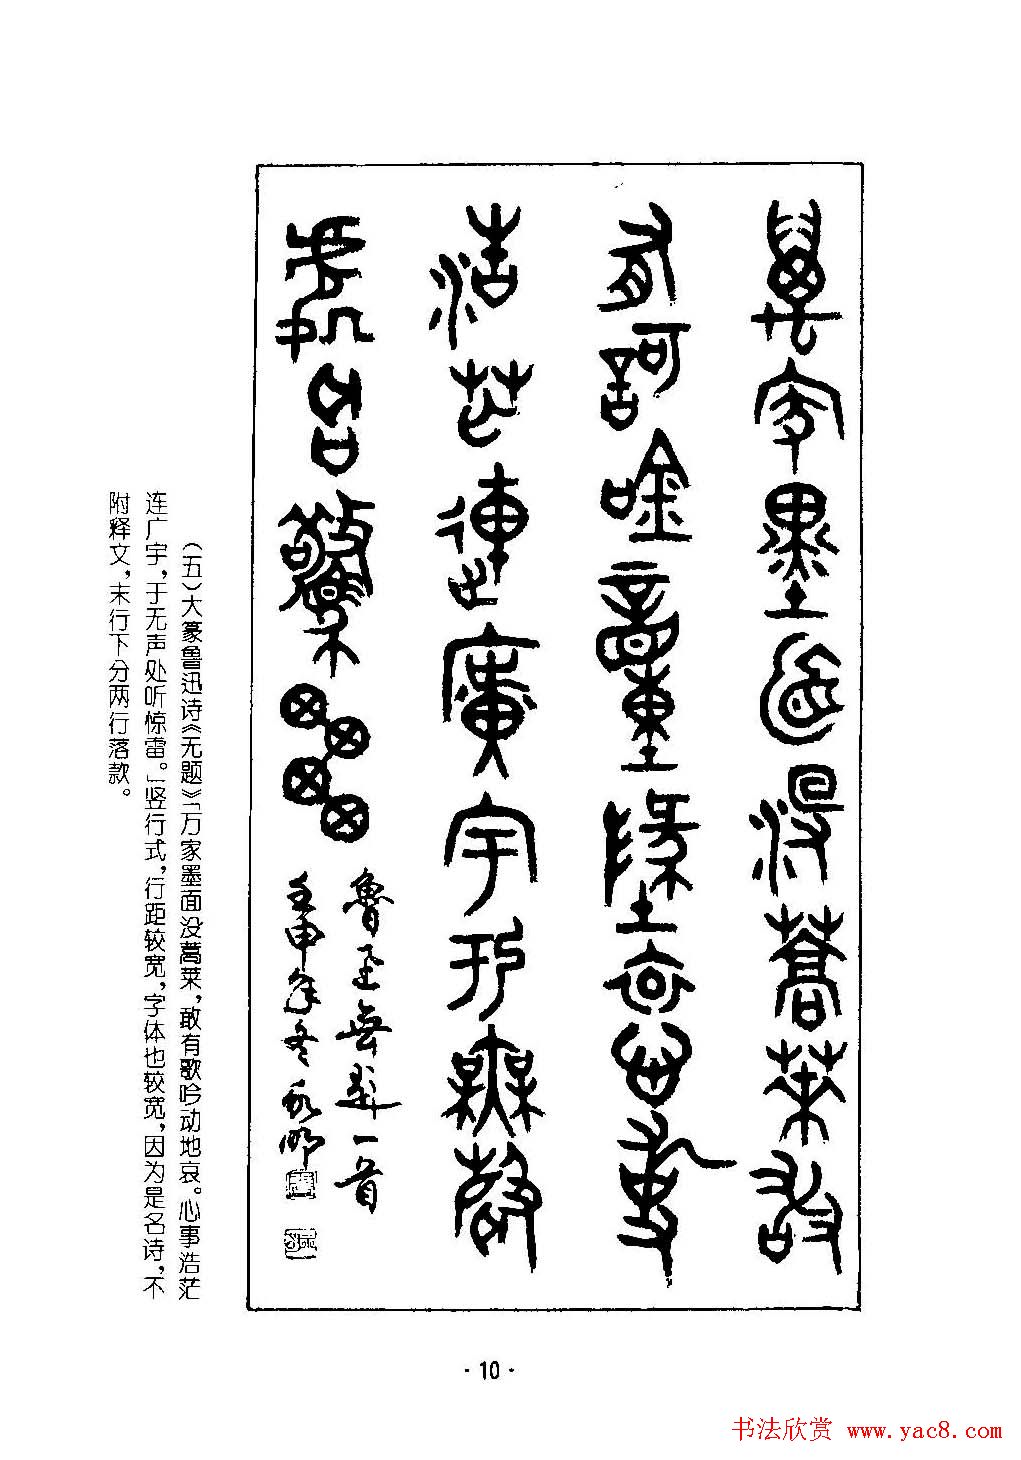 萬家墨面沒蒿萊敢
有歌吟動地哀心事
浩茫連廣宇于無聲
處聽驚雷
魯迅無題一首
壬申年冬
(五)大篆鲁迅诗《无题》「万家墨面没蒿莱,敢有歌吟动地哀。心事浩茫
连广宇,于无声处听惊雷。」竖行式,行距较宽,字体也较宽,因为是名诗,不
附释文,末行下分两行落款。
· 10 ·
书法欣赏 www.yac8.com